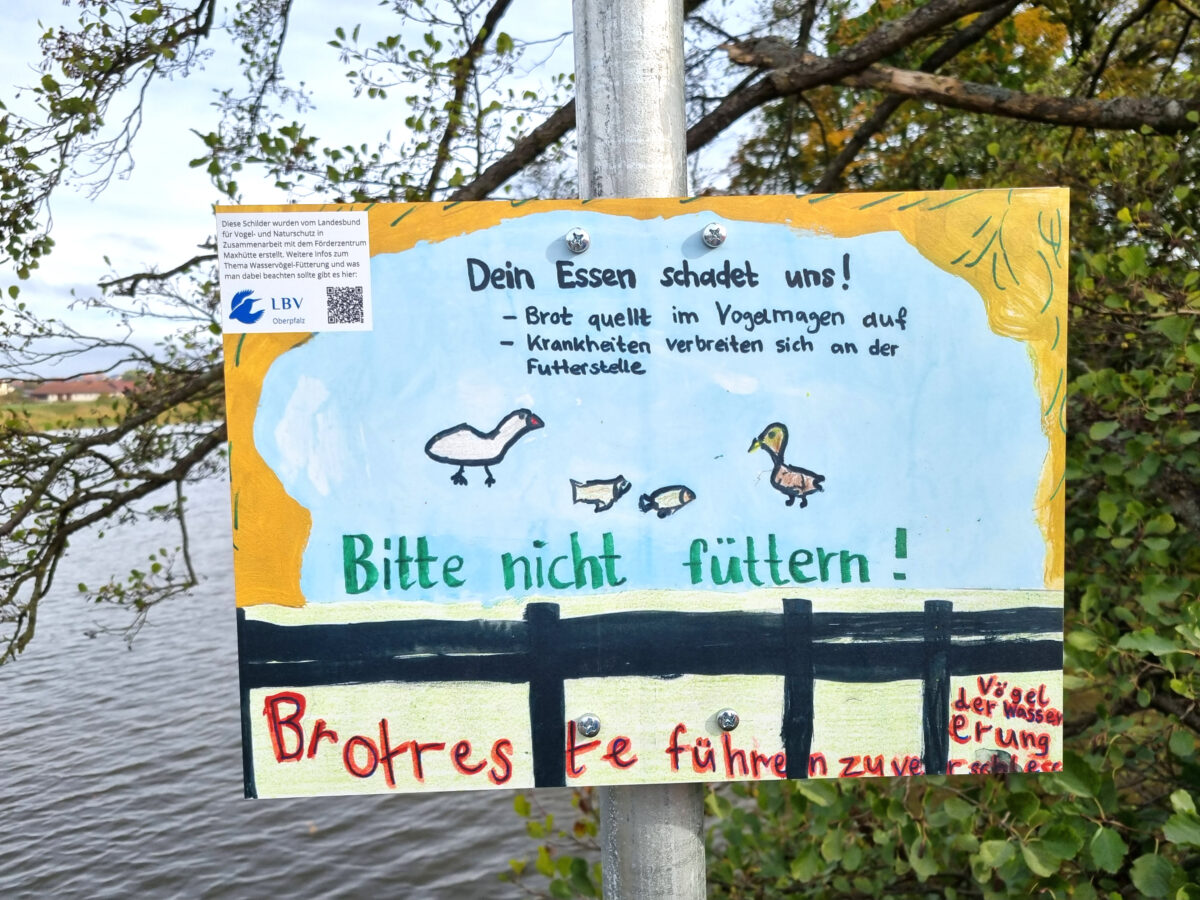 Diese Schilder wurden vom Landesbund
für Vogel- und Naturschutz in
Zusammenarbeit mit dem Förderzentrum
Maxhütte erstellt. Weitere Infos zum
Thema Wasservögel-Fütterung und was
man dabei beachten sollte gibt es hier:
LBV
Oberpfalz
Dein Essen schadet uns!
- Brot quellt im Vogelmagen auf
- Krankheiten verbreiten sich an der
Futterstelle
Bitte nicht füttern!
Vögel
der Wasser
erung
Brotreste führen zu